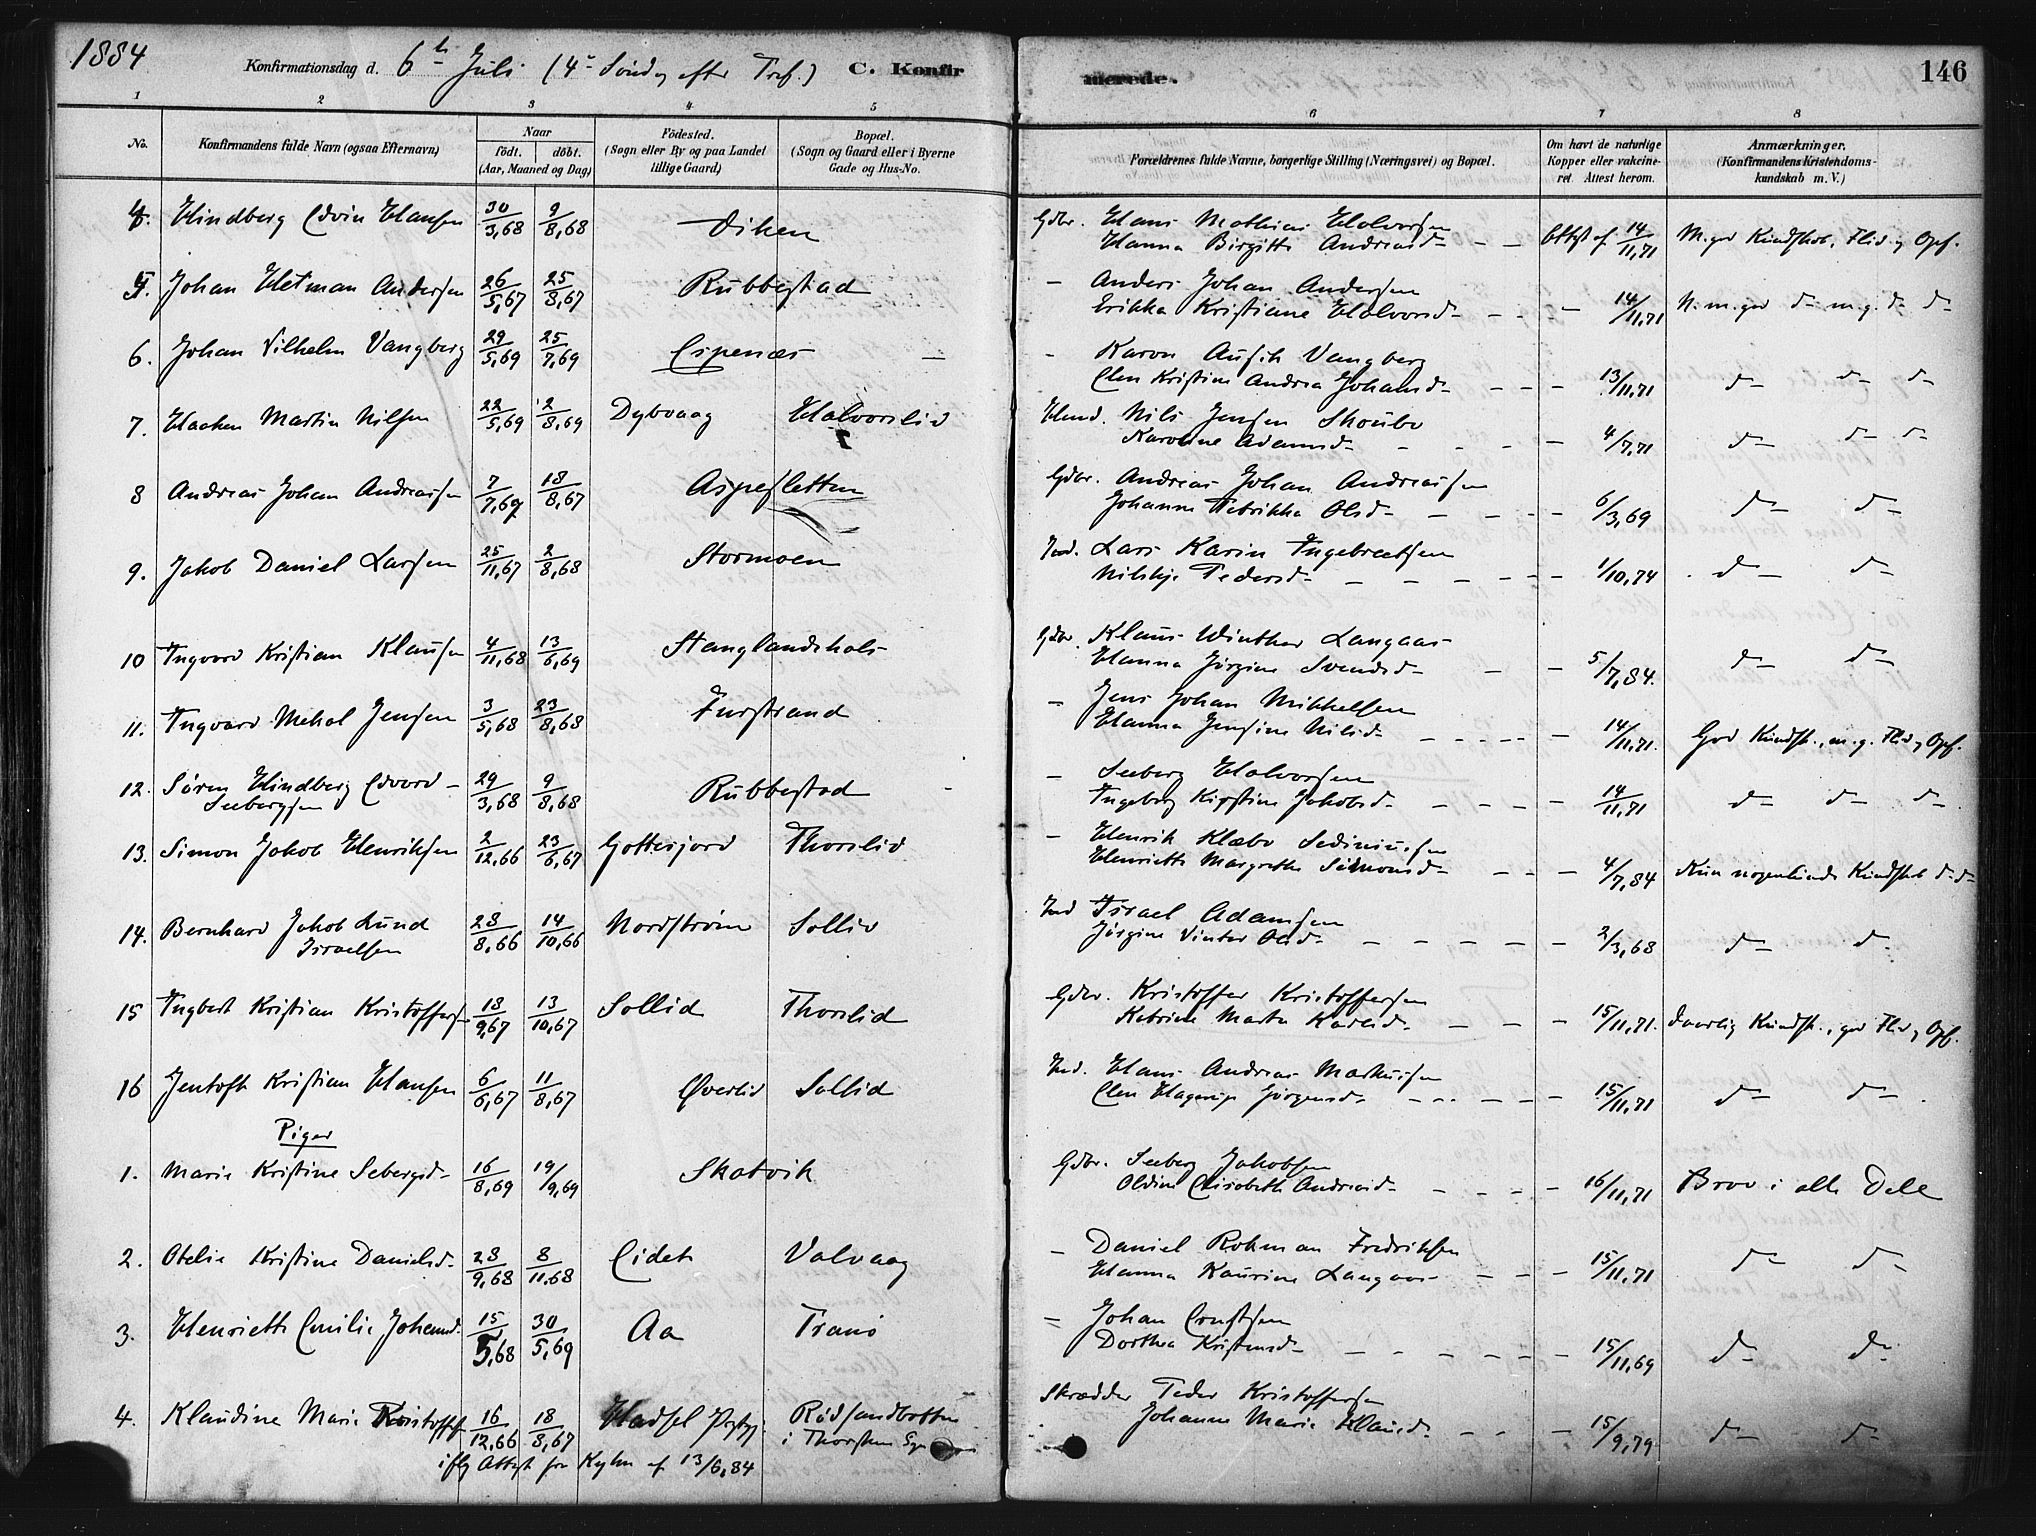 1884
Konfirmationsdag d. 6te Juli (4de Søndag efter Tref.) C. Konfirmerede. 146
1 2 3 4 5 6 7 8
No. Konfirmandens fulde Navn (ogsaa Efternavn) Naar Födested. Bopæl. Forældrenes fulde Navne, borgerlige Stilling (Næringsvei) og Bopæl. Om havt de naturlige Anmærkninger.
födt. döbt. (Sogn eller By og paa Landet (Sogn og Gaard eller i Byerne Kopper eller vakcine- (Konfirmandens Kristendoms-
(Aar, Maaned og Dag) tillige Gaard) Gade og Hus-No. ret. Attest herom. kundskab m. V.)
4. Hindberg Edvin Hansen 30/3,68 9/8,68 Viken Gdbr. Hans Mathias Halvorsen
Hanna Birgitte Andreasd- - - Attest af 14/11,71 M. god Kundskab, Flid og Opf.
5. Johan Hetman Andersen 26/5,67 25/8,67 Rubbestad - Anders Johan Andersen
Erikka Kristiane Halvorsd- - - - 14/11,71 N. m. god d- m. g. d- d-
6. Johan Vilhelm Vangberg 29/5,69 25/7,69 Espenæs - - Karon Vangberg
Elen Kristine Andrea Johansd- - - - 13/11,71 d- d- d-
7. Haaken Martin Nilsen 22/5,69 2/8,69 Dybvaag Halvorslid Husmd. Nils Jensen Skoubo
Karoline Adamsd- - - - 4/7,71 d- d- d-
8 Andreas Johan Andreassen 7/7,67 18/8,67 Aspesletten Gdbr. Andreas Johan Andreassen
Johanna Fredrikka Olsd- - - - 6/3,69 d- d-
9. Jakob Daniel Larsen 25/11,67 2/8,68 Stormoen Ind. Lars Karin Ingebretsen
Nilskje Pedersd- - - - - - - 1/10,74 d- d-
10 Ingvard Kristian Klausen 4/11,68 13/6,69 Stanglandshals Gdbr. Klaus Winther Langaas
Hanna Jørgine Svendsd- - - 5/7,84. d- d-
11. Ingvard Mekal Jensen 3/5,68 23/8,68 Furstrand - Jens Johan Mikkelsen
Hanna Jensine Nilsd- - - - - - 14/11,71. God Kundsk., m. g. Flid og Opf.
12. Søren Hindberg Edvard - 29/3,68 9/8,68 Rubbestad - - Seeberg Halvorsen
Seebergsen Ingeborg Kirstine Jakobsd- - - - - 14/11,71 d- d- d-
13. Simon Jakob Henriksen 2/12,66 23/6,67 Gottesjord Thorslid - Henrik Klæbo Sediniussen
Henriette Margrethe Simonsd- - - - 4/7,84 Kun nogenlunde Kundskab d- d-
14. Bernhard Jakob Lund 28/8,66 14/10,66 Nordstrøm Sollid Ind Israel Adamsen
Israelsen Jørgine Vinter Olsd- - - - - - 2/3,68 d- d-
15 Ingbert Kristian Kristoffersen 18/9,67 13/10,67 Sollid Thorslid Gdbr. Kristoffer Kristoffersen
Katrine Marta Karlsd- - - - 15/11,71. daarlig Kundsk., god Flid og Opf.
16 Jentoft Kristian Hansen 6/6,67 11/8,67 Øverlid Sollid Ind. Hans Andreas Markussen
Elen Hagerup Jørgensd- - - - - - 15/11,71 d- d-
Piger
1. Marie Kristine Sebergsd- 16/8,69 19/9,69 Skatvik Gdbr. Seeberg Jakobsen
Oldine Elisabeth Andreasd- - - - - 16/11,71 Brav i alle Dele
2. Otelie Kristine Danielsd- 28/9,68 8/11,68 Eidet Valvaag - Daniel Rohman Fredriksen
Hanna Kaurine Langaas - - - 15/11,71 d- d-
3. Henriette Emilie Johansd. 15/5,68 30/5,69 Aa Tranø - Johan Ernstsen
Dorthea Kristensd- - - - - - - 15/11,69 d- d-
4. Klaudine Marie Kristoffs 16/12,66 18/8,67 Hadsel Prgj. Rødsandbotten Skrædder Peder Kristoffersen
i Thorsken Johanna Marie Hansd- - - - 15/9,79 d- d-
iflg Attest fra af 13/6,84